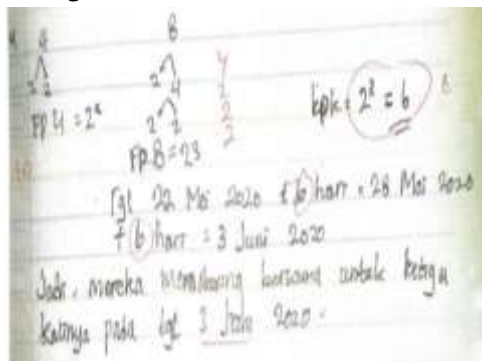 4 8
2 2 2 4
2 2
FP 4 = 2²
FP 8 = 23
kpk = 2³ = 6
Tgl 22 Mei 2020 + 6 hari = 28 Mei 2020
+ 6 hari = 3 Juni 2020
Jadi, mereka bersama untuk ketiga
kalinya pada tgl 3 Juni 2020.